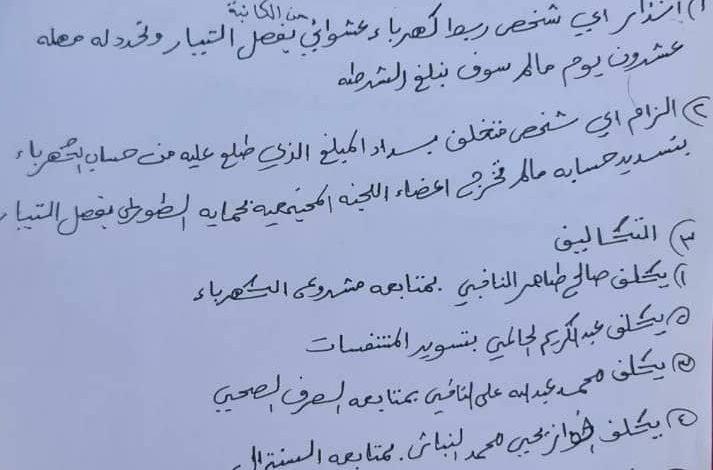 ١) انذار اي شخص ربط كهرباء عشوائي من الكابنة بفصل التيار وتحدد له مهله
عشرون يوم مالم سوف نبلغ الشرطه
٢) الزام اي شخص متخلف بسداد المبلغ الذي طلع عليه من حساب الكهرباء
بتسديد حسابه مالم تخرج اعضاء اللجنه المجتمعيه بحمايه الطوارئ بفصل التيار
٣) التكاليف
١) يكلف صالح طاهر النافبي بمتابعه مشروع الكهرباء
٢) يكلف عبدالكريم الحالمي بتسوير المتنفسات
٣) يكلف محمد عبدالله علي النافبي بمتابعه الصرف الصحي
٤) يكلف فواز يحيى محمد النباش بمتابعه السنترال